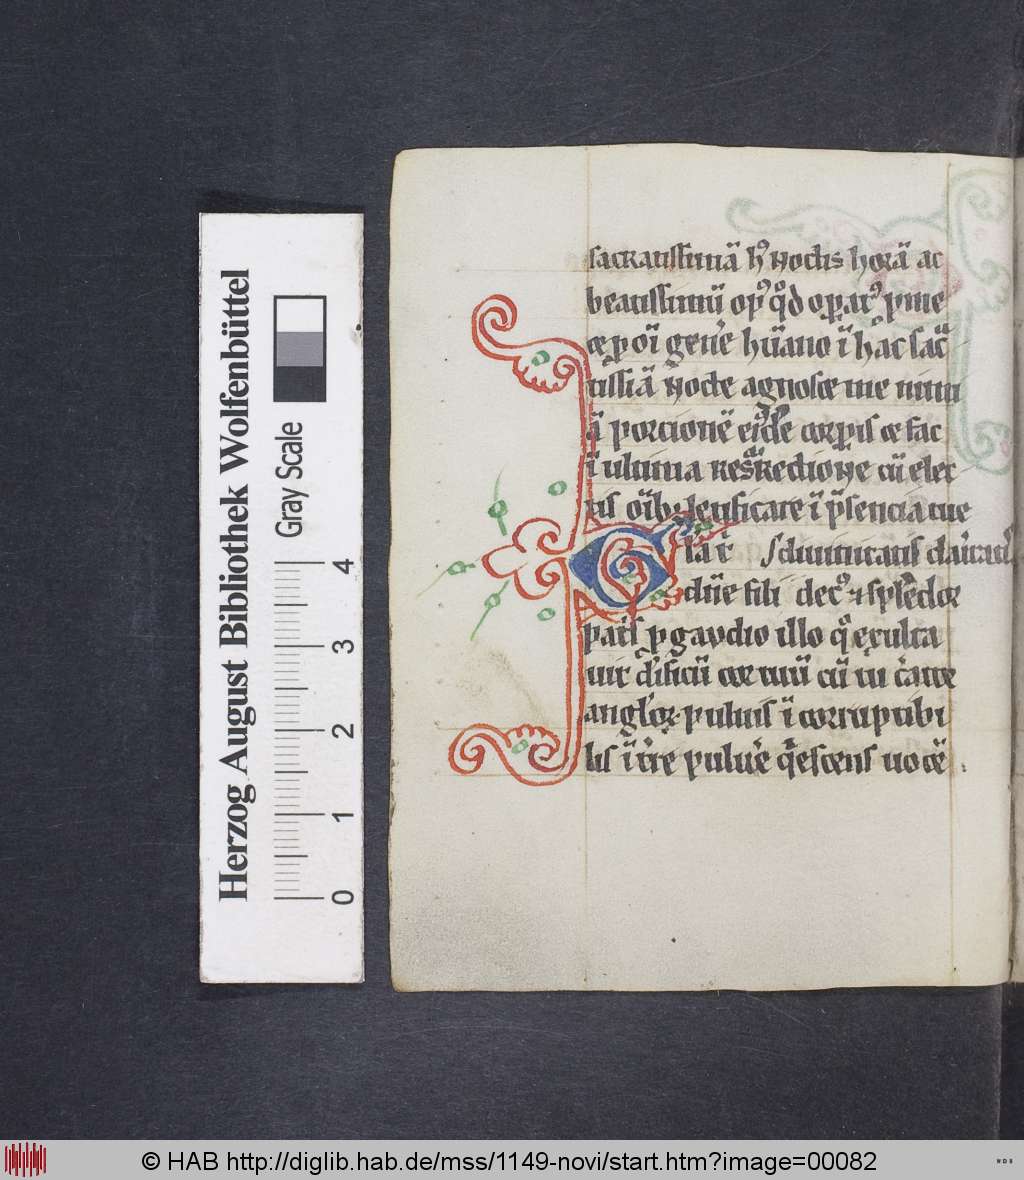 Herzog August Bibliothek Wolfenbüttel
Gray Scale
0 1 2 3 4
sacratissimā h᷒ noctis horā ac
beatissimū op᷒ q̊d opat᷒ p me
ce p oī gen̾e hūano ī hac sac̾
tissīā nocte agnosce me mini
ā porcionē ei᷒dē corpis ce fac
ī ultima resurectione cū elec
tis oīb᷒ letificare ī p̾sencia tue
dn̄e fili dec᷒ ⁊ splēdor
pat̾s p gaudio illo q̊ exulta
uit
cor tuū cū tu
anglor᷒ puluis ī corruptibi
lis ī t̾re puluē q̊escens uocē
© HAB http://diglib.hab.de/mss/1149-novi/start.htm?image=00082